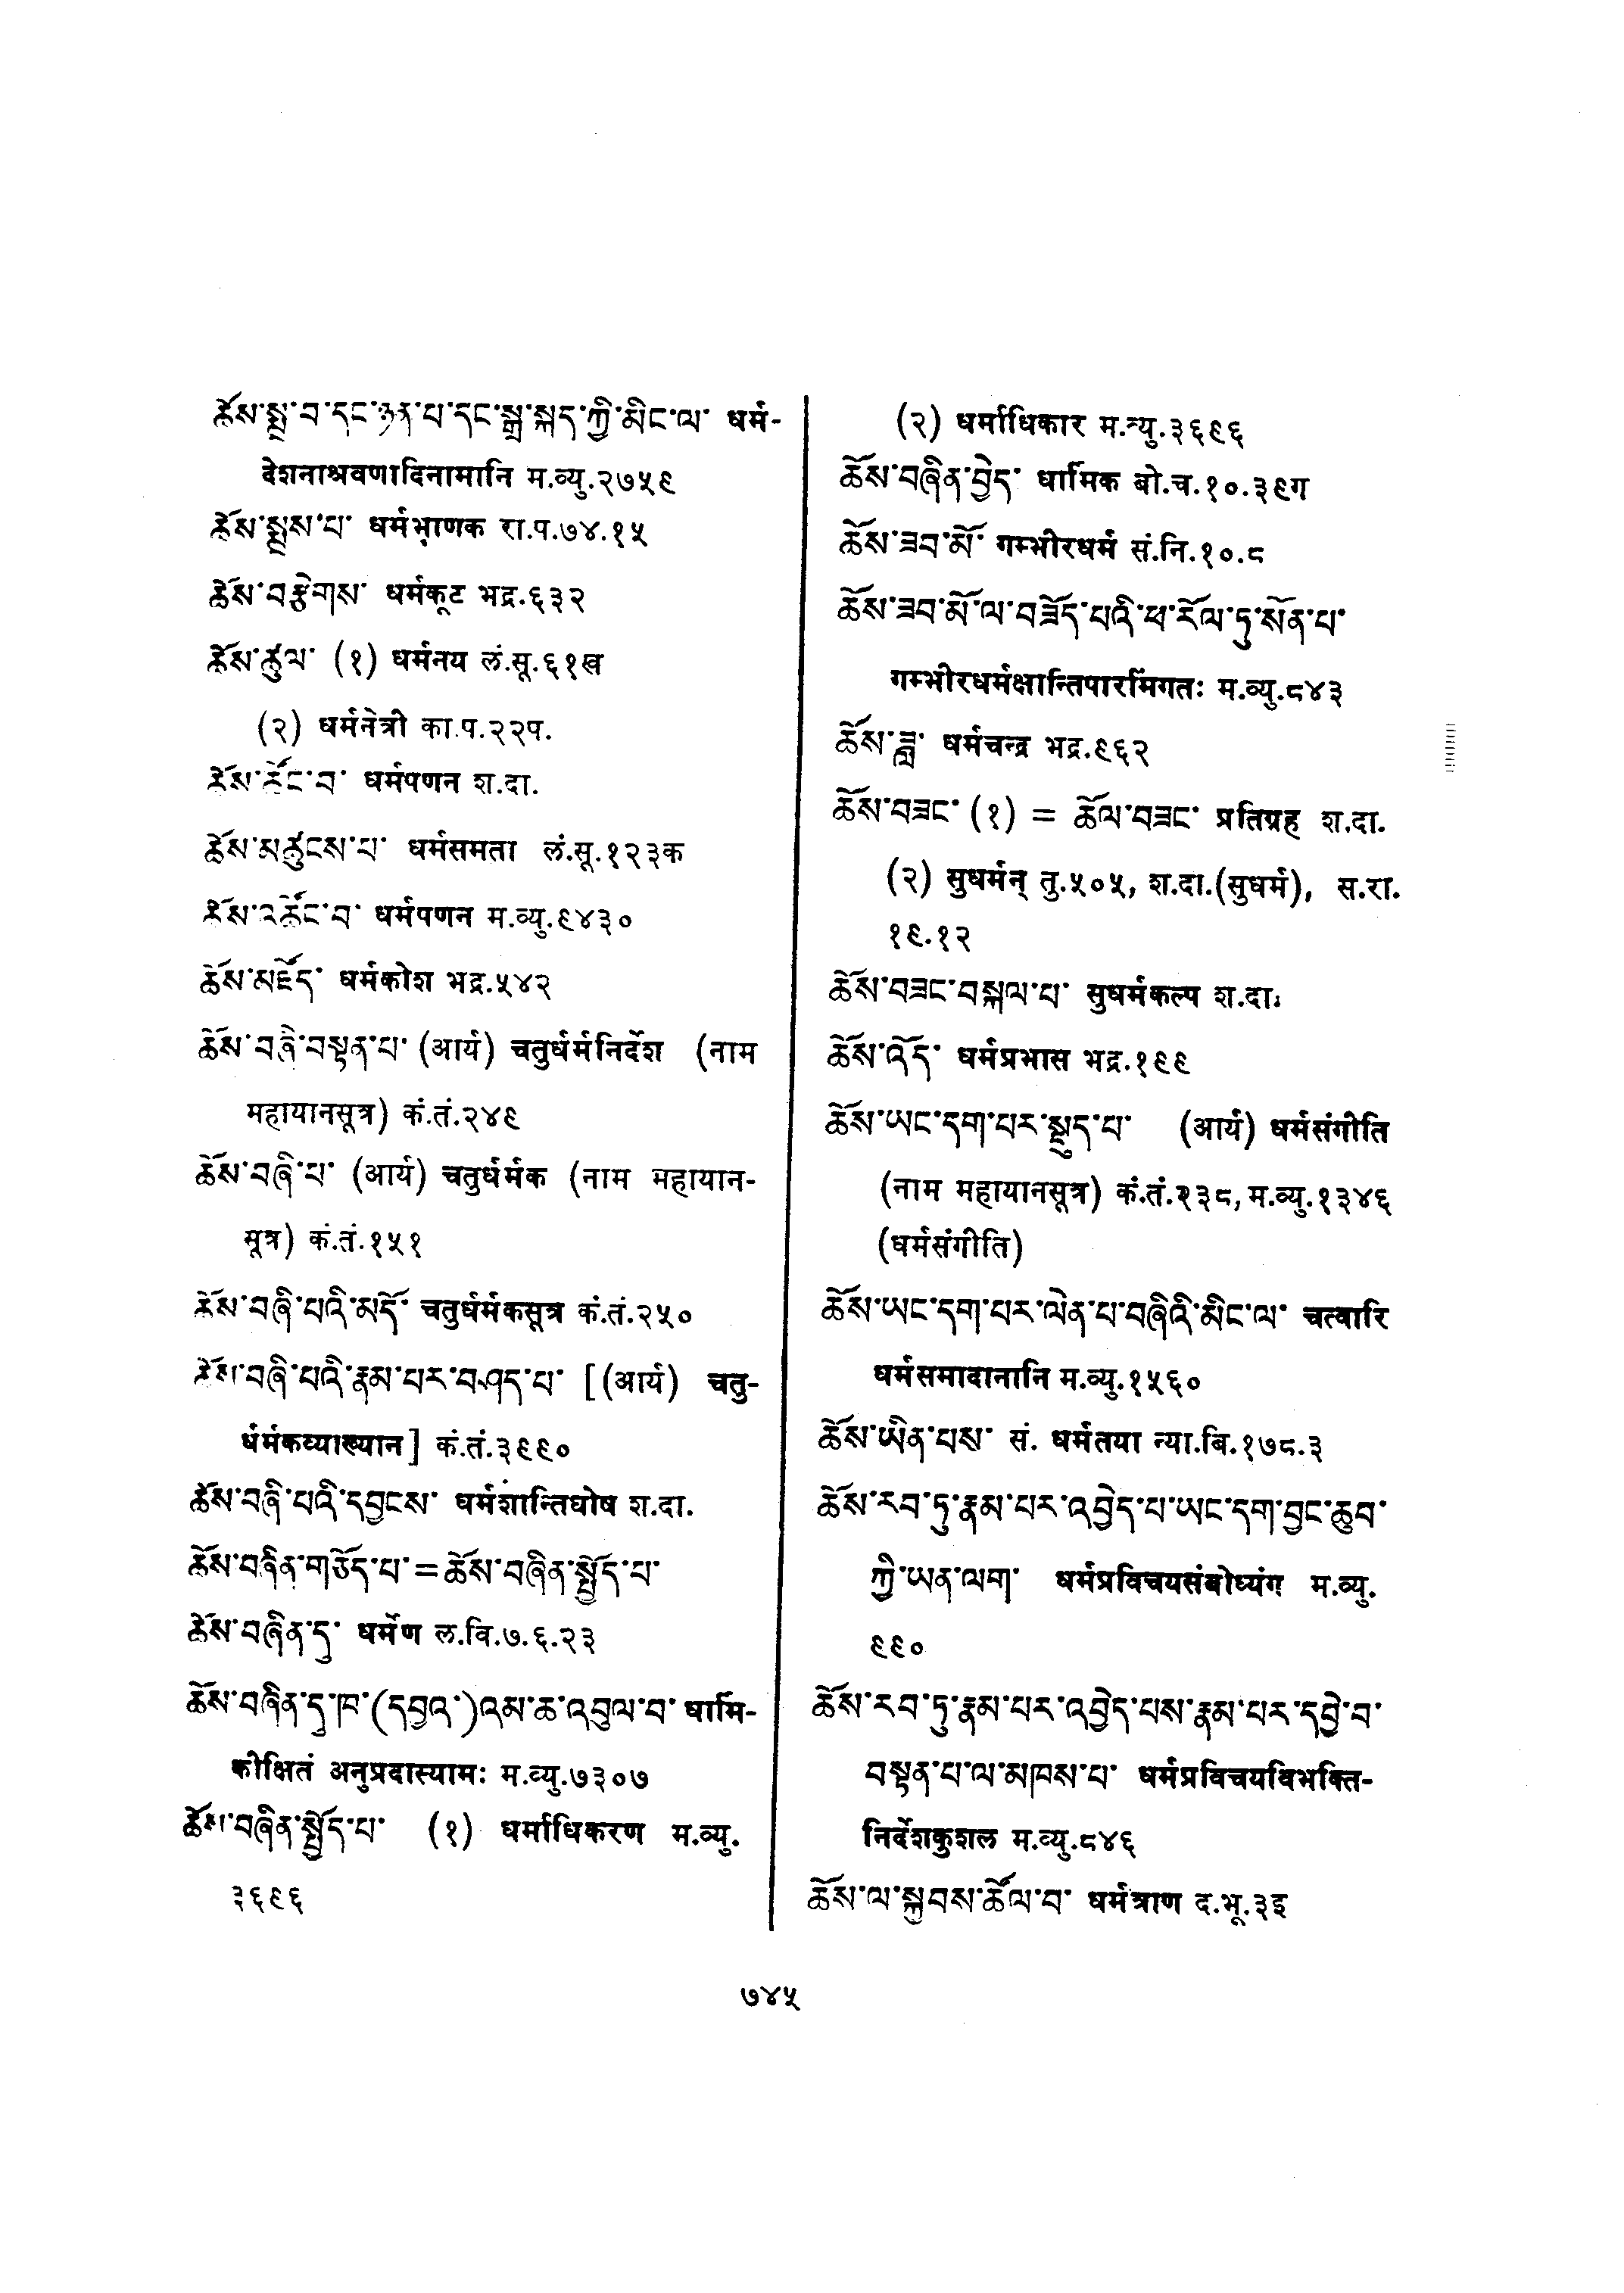 ཆོས་སྨྲ་བ་དང་ཉན་པ་དང་སྒྲ་སྐད་ཀྱི་མིང་ལ་ धर्म-
देशनाश्रवणादिनामानि म.व्यु.२७५९
ཆོས་སྨྲས་པ་ धर्मभाणक रा.प.७४.१५
ཆོས་བརྩེགས་ धर्मकूट भद्र.६३२
ཆོས་ཚུལ་ (१) धर्मनय लं.सू.६१ख
(२) धर्मनेत्री का.प.२२प.
ཆོས་ཚོང་བ་ धर्मपणन श.दा.
ཆོས་མཚུངས་པ་ धर्मसमता लं.सू.१२३क
ཆོས་འཚོང་བ་ धर्मपणन म.व्यु.९४३०
ཆོས་མཛོད་ धर्मकोश भद्र.५४२
ཆོས་བཞི་བསྟན་པ་ (आर्य) चतुर्धर्मनिर्देश (नाम
महायानसूत्र) कं.तं.२४९
ཆོས་བཞི་པ་ (आर्य) चतुर्धर्मक (नाम महायान-
सूत्र) कं.तं.१५१
ཆོས་བཞི་པའི་མདོ་ चतुर्धर्मकसूत्र कं.तं.२५०
ཆོས་བཞི་པའི་རྣམ་པར་བཤད་པ་ [(आर्य) चतु-
र्धर्मकव्याख्यान] कं.तं.३९९०
ཆོས་བཞི་པའི་དབྱངས་ धर्मशान्तिघोष श.दा.
ཆོས་བཞིན་གཅོད་པ་=ཆོས་བཞིན་སྤྱོད་པ་
ཆོས་བཞིན་དུ་ धर्मेण ल.वि.७.६.२३
ཆོས་བཞིན་དུ་ཁ་(དབྱའ་)འམ་ཆ་འབུལ་བ་ धार्मि-
कीक्षितं अनुप्रदास्यामः म.व्यु.७३०७
ཆོས་བཞིན་སྤྱོད་པ་ (१) धर्माधिकरण म.व्यु.
३६९६
(२) धर्माधिकार म.व्यु.३६९६
ཆོས་བཞིན་བྱེད་ धार्मिक बो.च.१०.३९ग
ཆོས་ཟབ་མོ་ गम्भीरधर्म सं.नि.१०.८
ཆོས་ཟབ་མོ་ལ་བཟོད་པའི་ཕ་རོལ་ཏུ་སོན་པ་
गम्भीरधर्मक्षान्तिपारमिंगतः म.व्यु.८४३
ཆོས་ཟླ་ धर्मचन्द्र भद्र.९६२
ཆོས་བཟང་ (१) = ཆོལ་བཟང་ प्रतिग्रह श.दा.
(२) सुधर्मन् तु.५०५, श.दा.(सुधर्म), स.रा.
१९.१२
ཆོས་བཟང་བསྐལ་པ་ सुधर्मकल्प श.दा.
ཆོས་འོད་ धर्मप्रभास भद्र.१९९
ཆོས་ཡང་དག་པར་སྡུད་པ་ (आर्य) धर्मसंगीति
(नाम महायानसूत्र) कं.तं.२३८, म.व्यु.१३४६
(धर्मसंगीति)
ཆོས་ཡང་དག་པར་ལེན་པ་བཞིའི་མིང་ལ་ चत्वारि
धर्मसमादानानि म.व्यु.१५६०
ཆོས་ཡིན་པས་ सं. धर्मतया न्या.बि.१७८.३
ཆོས་རབ་ཏུ་རྣམ་པར་འབྱེད་པ་ཡང་དག་བྱང་ཆུབ་
ཀྱི་ཡན་ལག་ धर्मप्रविचयसंबोध्यंग म.व्यु.
९९०
ཆོས་རབ་ཏུ་རྣམ་པར་འབྱེད་པས་རྣམ་པར་དབྱེ་བ་
བསྟན་པ་ལ་མཁས་པ་ धर्मप्रविचयविभक्ति-
निर्देशकुशल म.व्यु.८४६
ཆོས་ལ་སྐྱབས་ཚོལ་བ་ धर्मत्राण द.भू.३इ
७४५